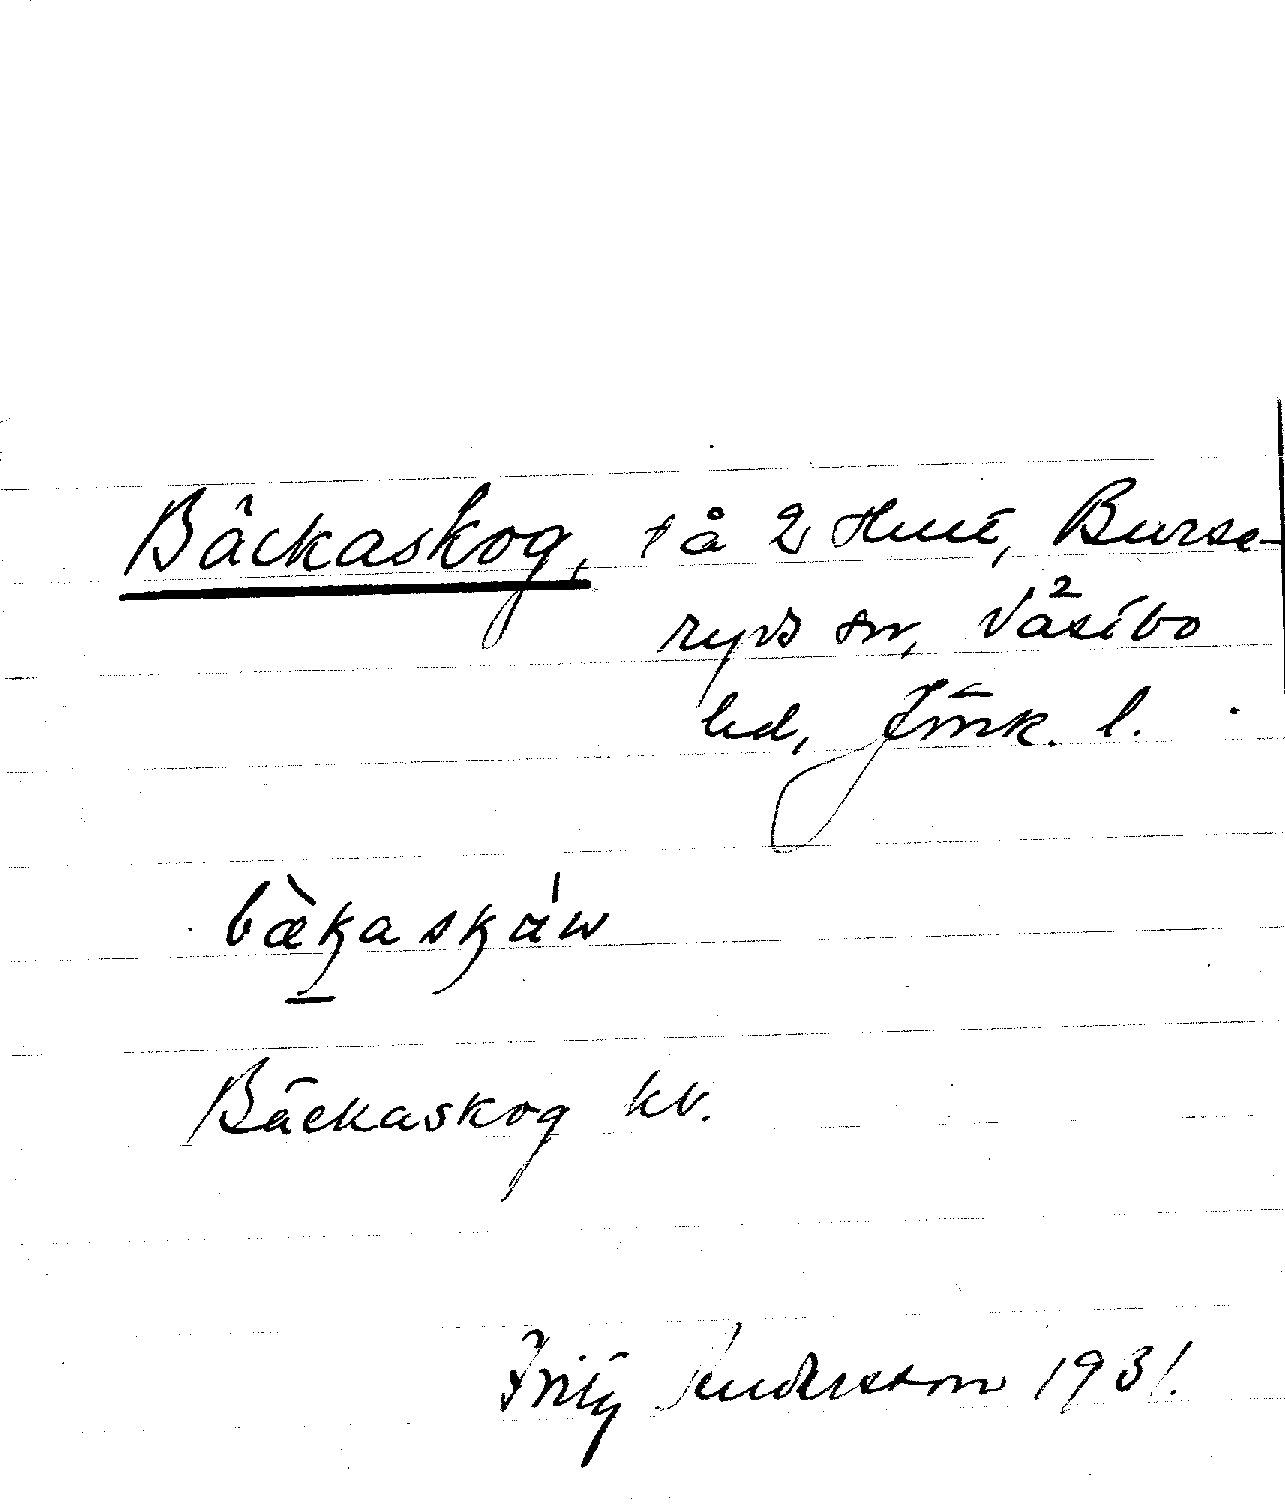 Bäckaskog, t å 2 Hult, Burse-
ryds sn, Västbo
hd, Jönk. l.
bæ̀kaskáw
Bäckaskog kv.
Fritz Andersson 1931.